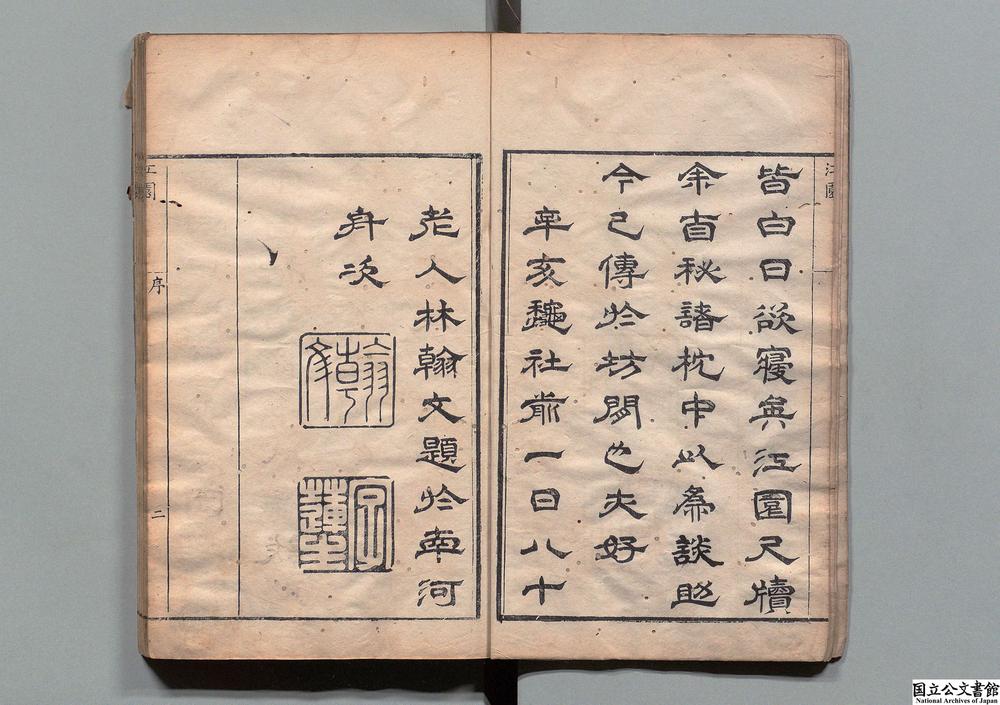 江園
皆白曰欲寢矣江園尺牘
余首秘諸枕中以為談助
今已傳於坊間也夫好
辛亥龝社前一日八十
老人林翰文題於南河
舟次
江園
序
二
国立公文書館
National Archives of Japan